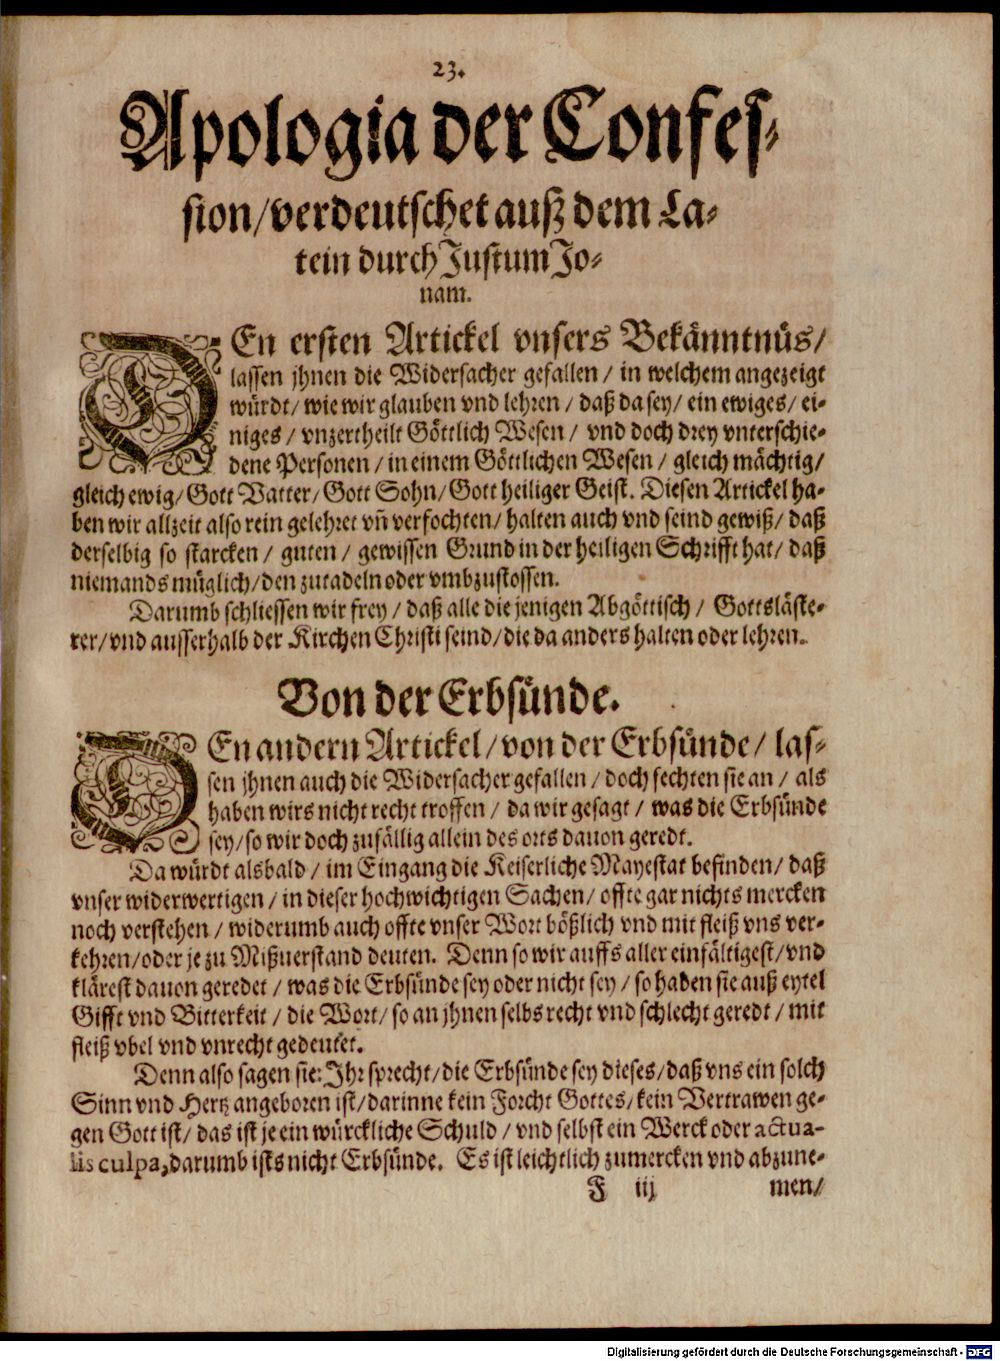 23.
Apologia der Confes⸗
sion/verdeutschet auß dem La⸗
tein durch Justum Jo⸗
nam.
DEn ersten Artickel vnsers Bekänntnüs/
lassen jhnen die Widersacher gefallen / in welchem angezeigt
würdt/ wie wir glauben vnd lehren / daß da sey/ ein ewiges/ ei⸗
niges / vnzertheilt Göttlich Wesen / vnd doch drey vnterschie⸗
dene Personen / in einem Göttlichen Wesen / gleich mächtig/
gleich ewig/ Gott Vatter/ Gott Sohn/ Gott heiliger Geist. Diesen Artickel ha⸗
ben wir allzeit also rein gelehret vñ verfochten/ halten auch vnd seind gewiß/ daß
derselbig so starcken / guten / gewissen Grund in der heiligen Schrifft hat/ daß
niemands müglich/ den zutadeln oder vmbzustossen.
Darumb schliessen wir frey / daß alle die jenigen Abgöttisch / Gottsläste⸗
rer/ vnd ausserhalb der Kirchen Christi seind/ die da anders halten oder lehren.
Von der Erbsünde.
DEn andern Artickel/ von der Erbsünde/ las⸗
sen jhnen auch die Widersacher gefallen / doch fechten sie an / als
haben wirs nicht recht troffen / da wir gesagt / was die Erbsünde
sey/ so wir doch zufällig allein des orts dauon geredt.
Da würdt alsbald / im Eingang die Keiserliche Mayestat befinden/ daß
vnser widerwertigen / in dieser hochwichtigen Sachen/ offte gar nichts mercken
noch verstehen / widerumb auch offte vnser Wort bößlich vnd mit fleiß vns ver⸗
kehren/ oder je zu Mißuerstand deuten. Denn so wir auffs aller einfältigest/ vnd
klärest dauon geredet / was die Erbsünde sey oder nicht sey / so haben sie auß eytel
Gifft vnd Bitterkeit / die Wort/ so an jhnen selbs recht vnd schlecht geredt / mit
fleiß vbel vnd vnrecht gedeutet.
Denn also sagen sie: Jhr sprecht/ die Erbsünde sey dieses/ daß vns ein solch
Sinn vnd Hertz angeboren ist/ darinne kein Forcht Gottes/ kein Vertrawen ge⸗
gen Gott ist/ das ist je ein würckliche Schuld / vnd selbst ein Werck oder actua-
lis culpa, darumb ists nicht Erbsünde. Es ist leichtlich zumercken vnd abzune⸗
F iij men/
Digitalisierung gefördert durch die Deutsche Forschungsgemeinschaft - DFG